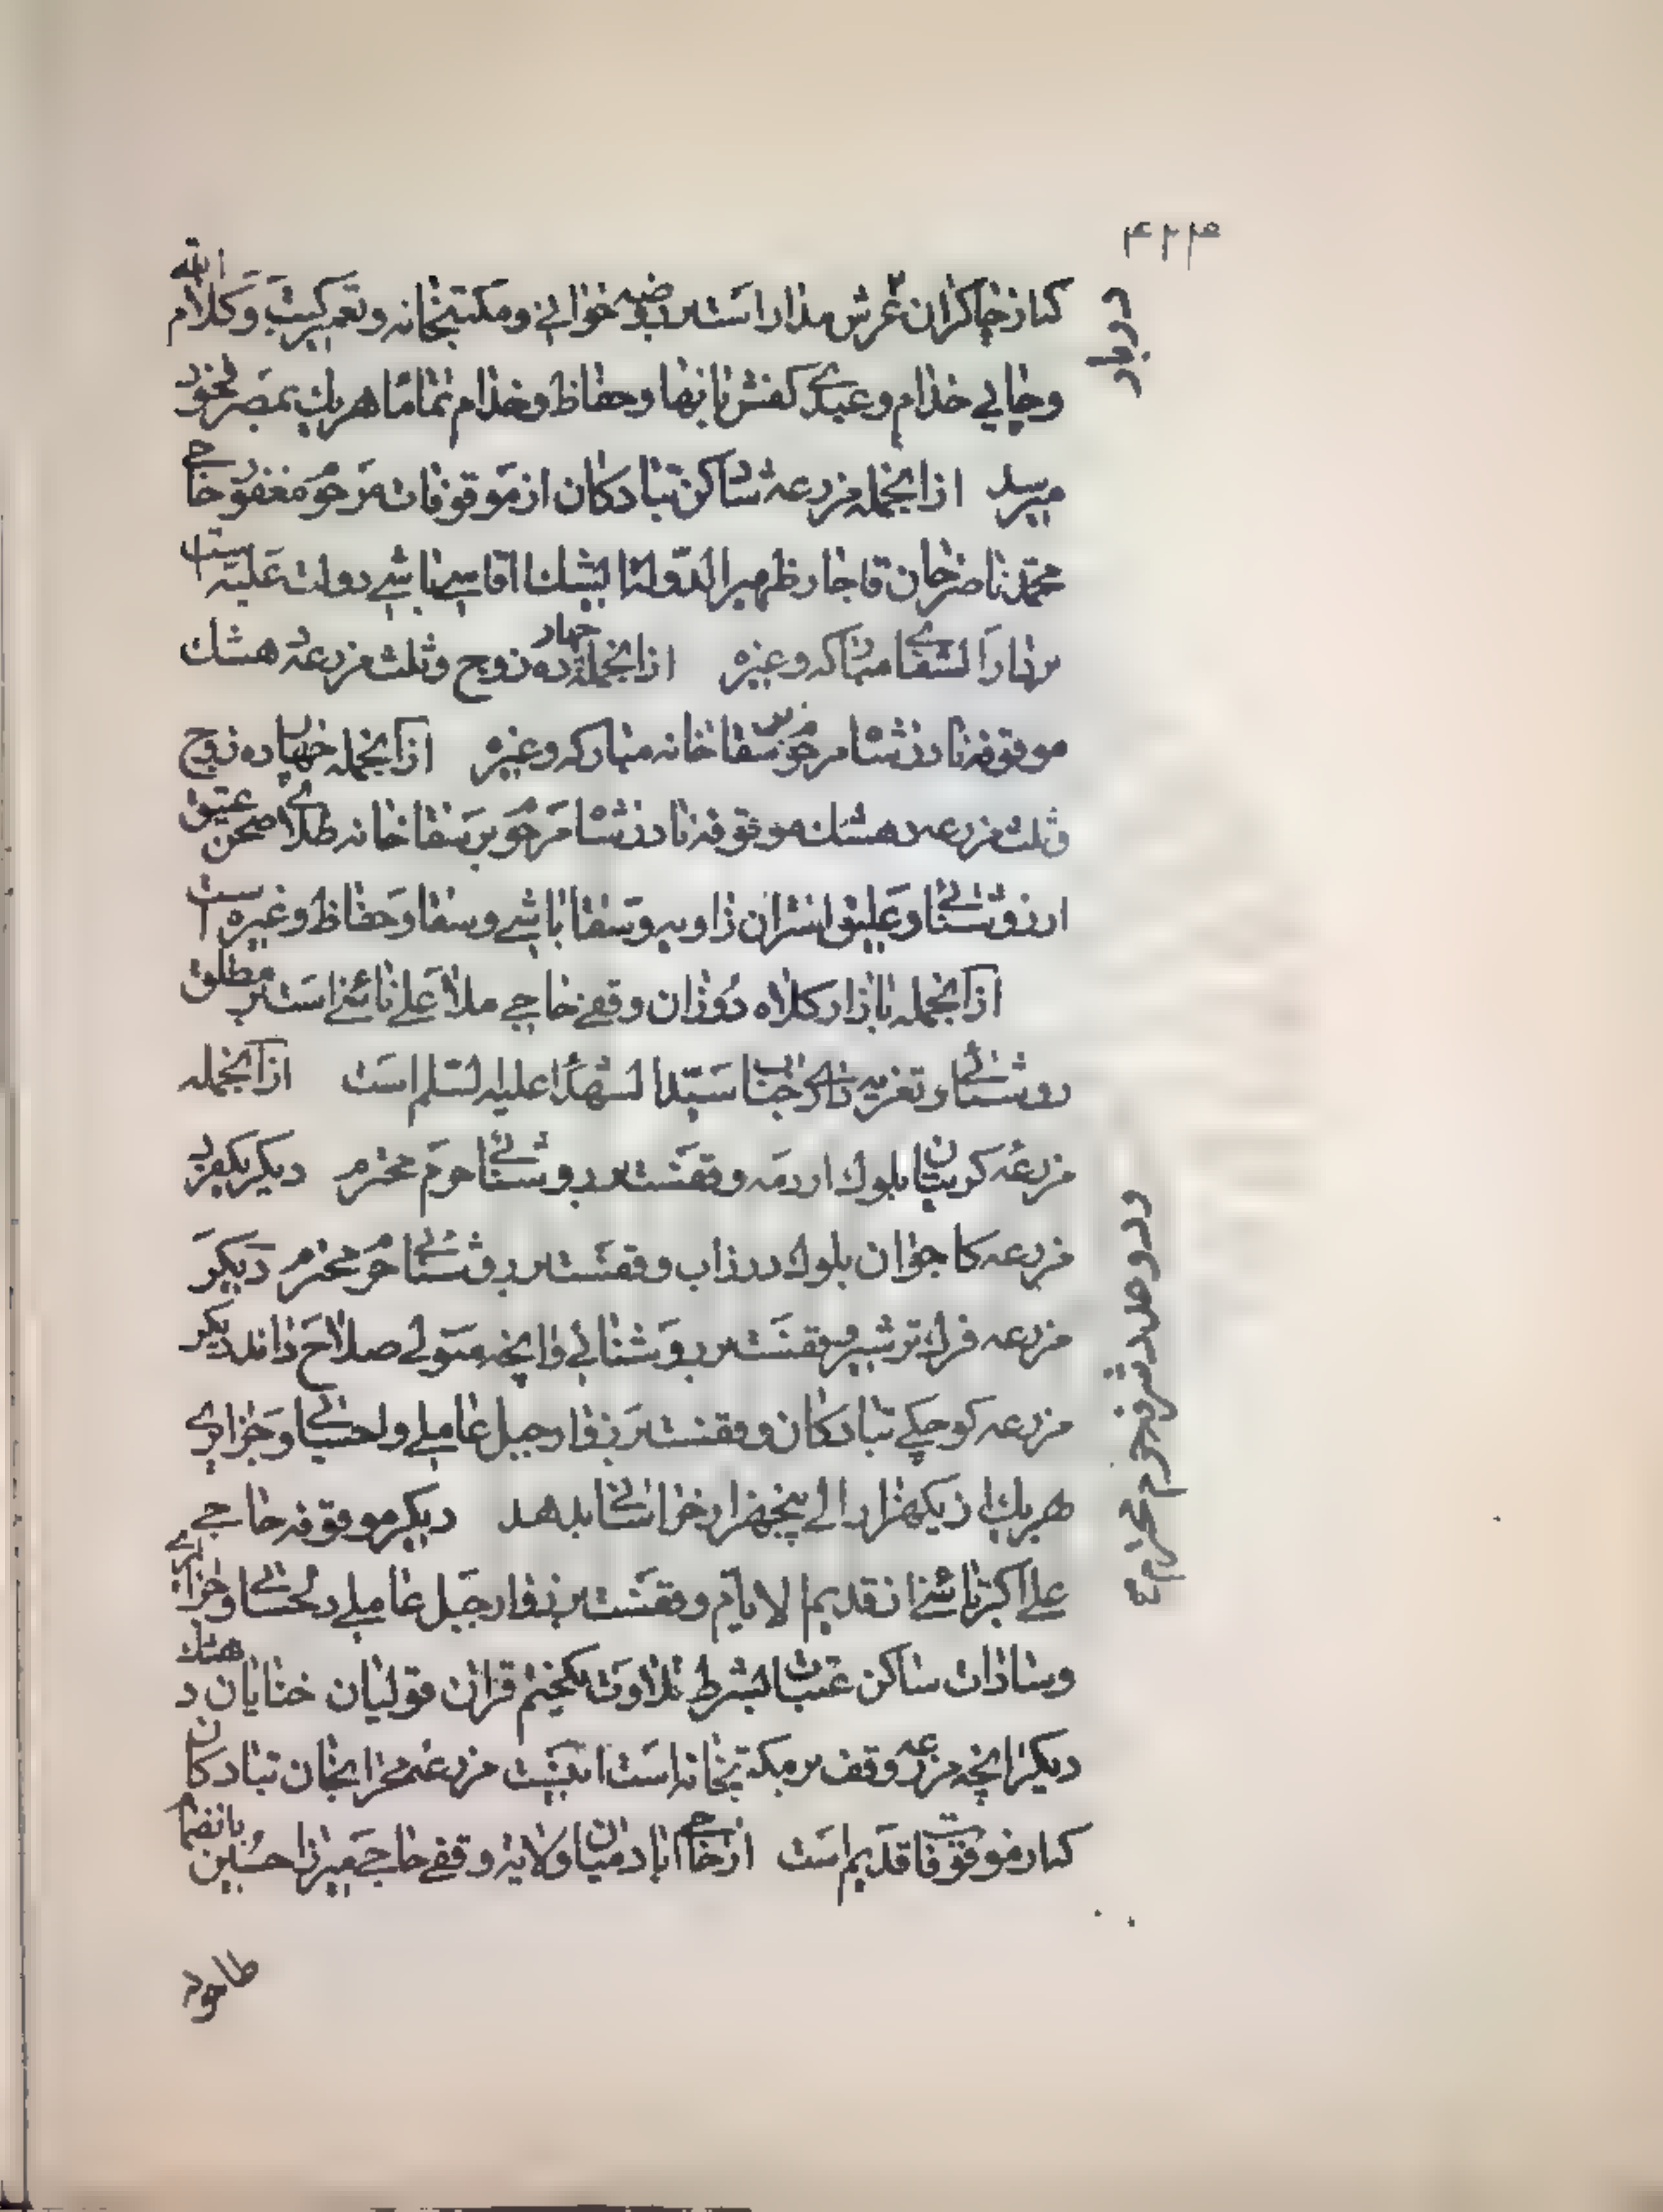 ۴۲۴
دربار
کنار خیاکران عرش مدار است بر روضه خوانی و مکتبخانه و تعمیر کتب و کلام الله
و چایی خدام و عیدی کفش بانها و حفاظ و خدام تماما هریک بمصرف خود
میرسد از انجمله مزرعه شاکن تبادکان از موقوفات مرحوم مغفور حاجی
محمد ناصر خان قاجار ظهیر الدوله ایشیک اقاسی باشی دولت علیه است
بر دار الشفای مبارکه و غیره از انجمله چهارده زوج و ثلث مزرعه هشتک
موقوفه نادر شاه مرحوم بر سقاخانه مبارکه و غیره از انجمله چهارده زوج
و ثلث مزرعه هشتک موقوفه نادر شاه مرحوم بر سقاخانه طلای صحن عتیق
از روشنائی و علیق اشتران زاویه و سقا باشی و سقا و حفاظ و غیره است
از انجمله بازار کلاه دوزان وقفی حاجی ملا علی نائینی است بر مطلق
روشنائی و تعزیه ذاکری جناب سید الشهدا علیه السلم است از انجمله
مزرعه کریتان بلوک اردمه وقفست بر روشنائی حرم محترم دیکر یکفرد
مزرعه کاجوان بلوک درزاب وقفست بر روشنائی حرم محترم دیکر
مزرعه فرک ترشیز وقفست بر روشنائی و انچه متولی صلاح داند دیکر
مزرعه کوچکی تبادکان وقفست بر زوار جبل عاملی و لحسائی و جزایری
هریک از یکهزار الی پنجهزار خراسانی بدهد دیکر موقوفه حاجی
علی اکبر نائینی از قدیم الایام وقفست بر زوار جبل عاملی و لحسائی و جزایری
و سادات ساکن عتبات بشرط تلاوت یکختم قران فولیان خنابان د هشتک
دیکر انچه مزرعه وقف بر مکتبخانه است اینست مزرعه خرابخان تبادکان
کنار موقوفات قدیم است از حاجی اباد میان ولایة وقفی حاجی میرزا حسین بانضمام
در و صد شرفه حرم محترم ع
طاحونه